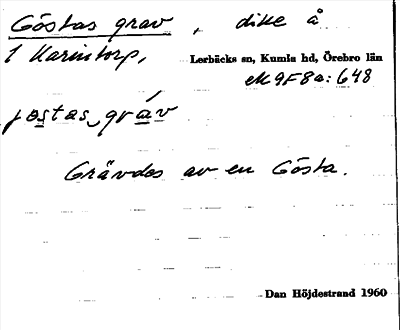 Göstas grav, dike å
1 Karintorp, Lerbäcks sn, Kumla hd, Örebro län
ek 9F8a:648
jɵstas gráv
Grävdes av en Gösta.
Dan Höjdestrand 1960